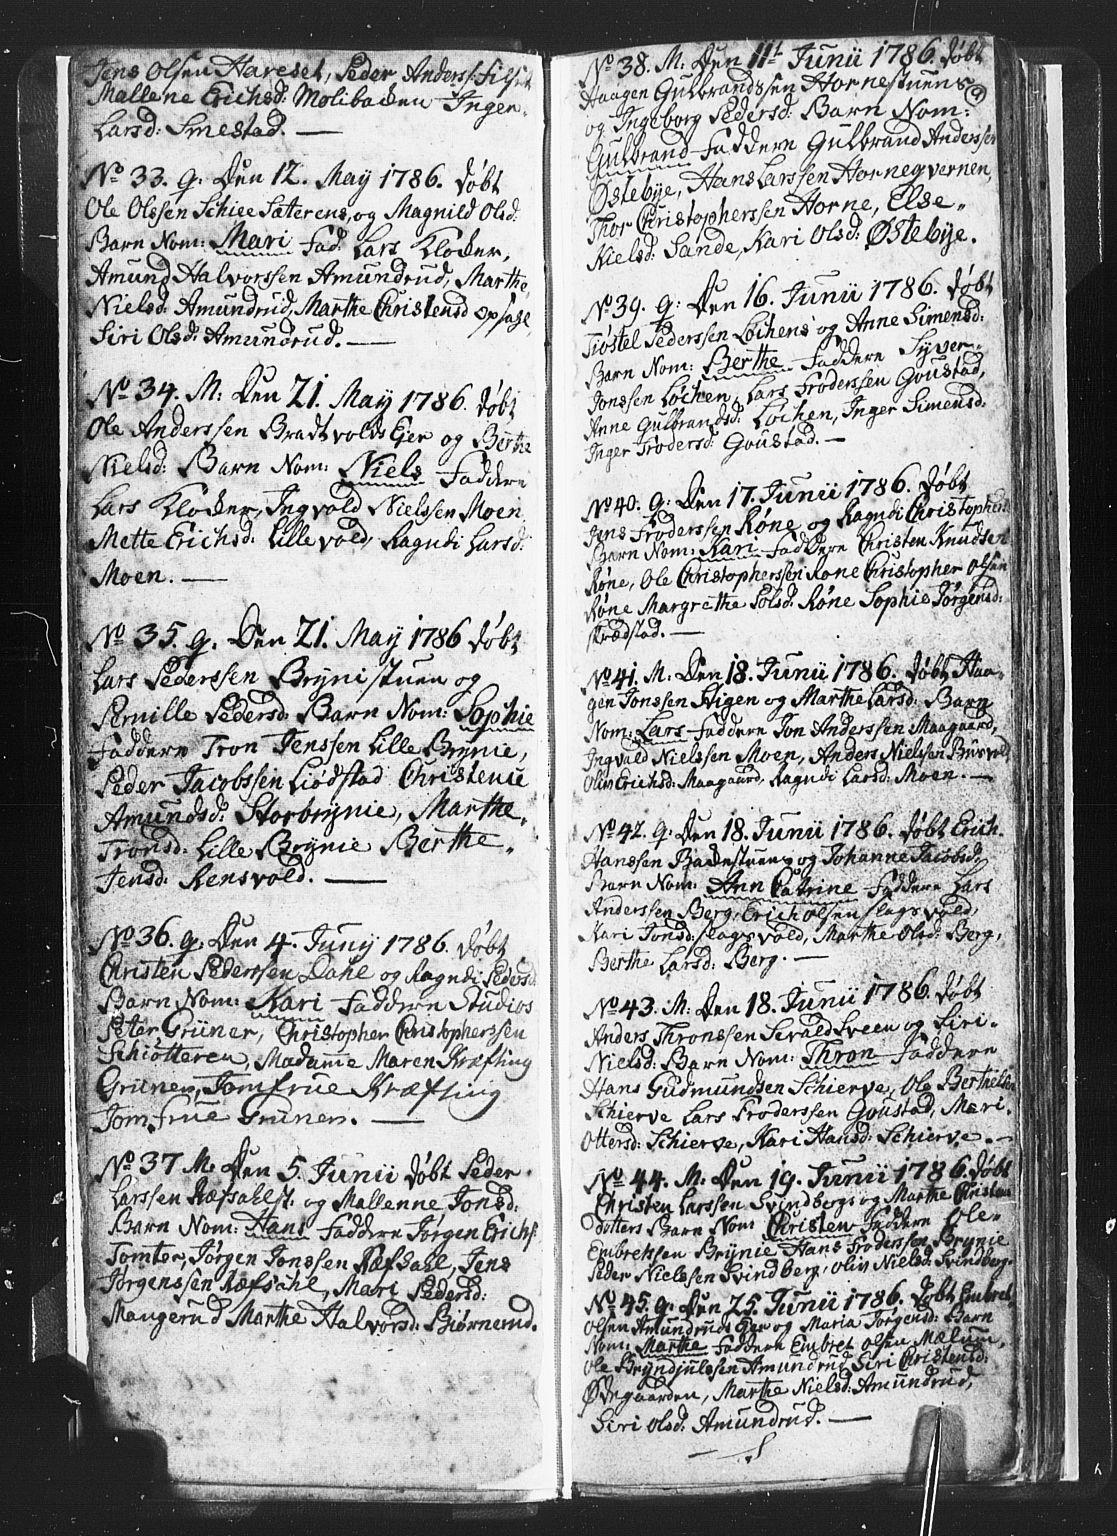 Jens Olsen Hareset, Peder Anderss: Silset
Mallene Erichsd: Molibacken Inger
Larsd: Smestad. —
No 33. g. Den 12. May 1786. døbt
Ole Olssen Schiee Sæterens, og Magnild Olsd:
Barn Nom: Mari Fad. Lars Klocker,
Amund Halvorssen Amundrud, Marthe
Nielsd: Amundrud, Marthe Christensd Opsage
Siri Olsd: Amundrud. —
No 34. M: Den 21. May 1786. døbt
Ole Anderssen Bradtvolds Ejer og Berthe
Nielsd: Barn Nom: Niels Faddere
Lars Klocker, Ingvold Nielssen Moen
Mette Erichsd: Lillevold, Ragndi Larsd:
Moen. —
No 35. g. Den 21. May 1786 døbt
Lars Pedersen Brÿnistuen og
Pernille Pedersd: Barn Nom: Sophie
Faddere Tron Jenssen Lille Brÿnie,
Peder Jacobssen Liødstad Christenie
Amundsd: Storbrÿnie, Marthe
Tronsd: Lille Brÿnie Berthe
Jensd: Rensvold. —
No 36. g. Den 4. Junÿ 1786. døbt
Christen Pederssen Dahl og Ragndi Pedersd:
Barn Nom: Kari Faddere Studios
Peter Grüner, Christopher Christopherssen
Schiøtteren, Madame Maren Kræfting
Grüner, Jomfrue Kræfting
Jomfrue Grüner. —
No 37 M. Den 5. Junii døbt Peder
Larssen Ræfsahlst: og Mallenne Jonsd:
Barn Nom: Hans Faddere Jørgen Erichs:
Tomter, Jørgen Jonssen Ræfsahl, Jens
Jørgenssen Ræfsahl, Mari Pedersd:
Maugerud Marthe Halvorsd: Biørnerud.
9
No 38. M: Den 11t Junii 1786. døbt
Haagen Gulbrandssen Hornestuens
og Ingeborg Pedersd: Barn Nom:
Gulbrand Faddere Gulbrand Anderssen
Østebÿe, Hans Larssen Horneqvernen,
Thor Christopherssen Horne, Else
Nielsd: Sande, Kari Olsd: Østebÿe.
No 39. g: Den 16. Junii 1786. døbt
Tiøstel Pederssen Lochens og Anne Simensd:
Barn Nom: Berthe Faddere Sÿver
Jonssen Lochen, Lars Froderssen Goustad,
Anne Gulbrandsd: Lochen, Inger Simensd:
Inger Frodersd: Goustad. —
No 40. g: Den 17. Junii 1786. døbt
Jens Froderssen Røne og Ragndi Christophers:
Barn Nom: Kari Faddere Christen Knudsen
Røne, Ole Christopherssen Røne Christopher Olsen
Røne Margrethe Polsd: Røne Sophie Jørgensd:
Strædstad. —
No 41. M: Den 18. Junii 1786. døbt Haa-
gen Jonssen Stigen og Marthe Larsd: Barn
Nom: Lars Faddere Jon Anderssen Maagaard,
Ingvald Nielssen Moen, Anders Nielssen Burvold
Olin Erichsd: Maagaard, Ragndi Larsd: Moen. —
No 42. g: Den 18. Junii 1786. døbt Erich
Hanssen Backestuens og Johanne Jacobsd:
Barn Nom: Ann Catrine Faddere Lars
Anderssen Berg, Erich Olsen Slagsvold,
Kari Jonsd: Slagsvold, Marthe Olsd: Berg,
Berthe Larsd: Berg. —
No 43. M: Den 18. Junii 1786. døbt
Anders Thronssen Seraldsveen og Siri
Nielsd: Barn Nom: Thron Faddere
Hans Gudmundsen Schierve, Ole Berthelsen
Schierve Lars Froderssen Goustad, Mari
Ottersd: Schierve, Kari Hansd: Schierve. —
No 44. M: Den 19. Junii 1786. døbt
Christen Larssen Svindbergs og Marthe Christen
dotters Barn Nom Christen Faddere Ole
Embretssen Brÿnie Hans Froderssen Brÿnie
Peder Nielssen Svindberg, Olin Nielsd: Svindberg.
No 45. g: Den 25. Junii 1786. døbt Embret
Olsen Amundruds Ejer og Maria Jørgensd: Barn
Nom: Marthe Faddere Embret Olsen Mælum,
Ole Brÿndjulssen Amundrud, Siri Christensd:
Ødegaarden, Marthe Nielsd: Amundrud,
Siri Olsd: Amundrud. —